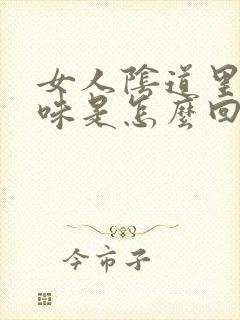 女人陰道里
味是怎麼回
今市子